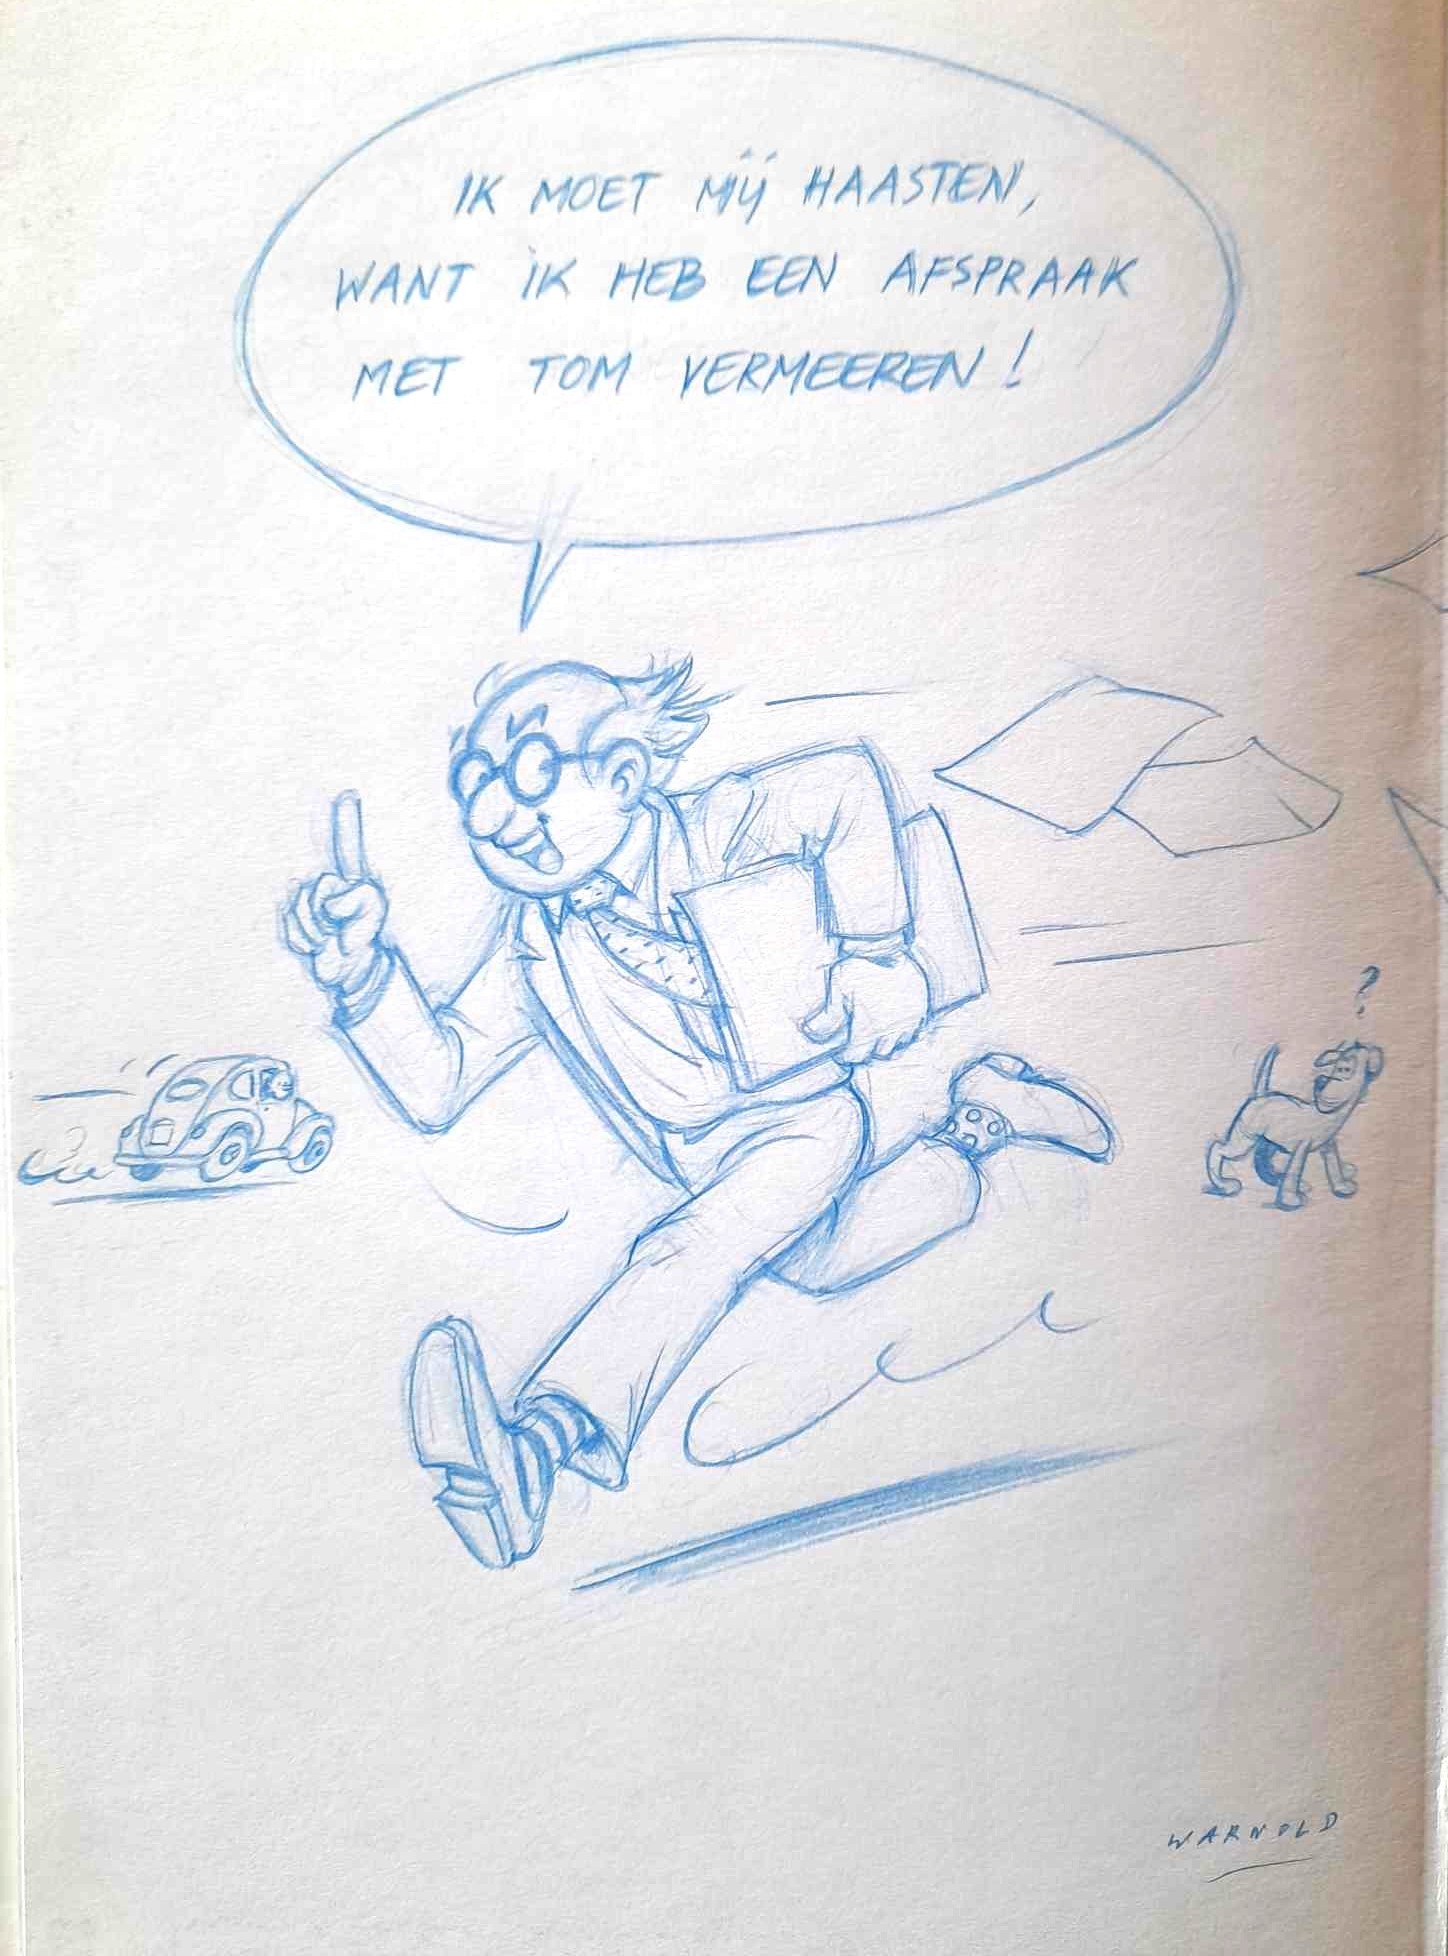 IK MOET MIJ HAASTEN,
WANT IK HEB EEN AFSPRAAK
MET TOM VERMEEREN!
?
WARNOLD